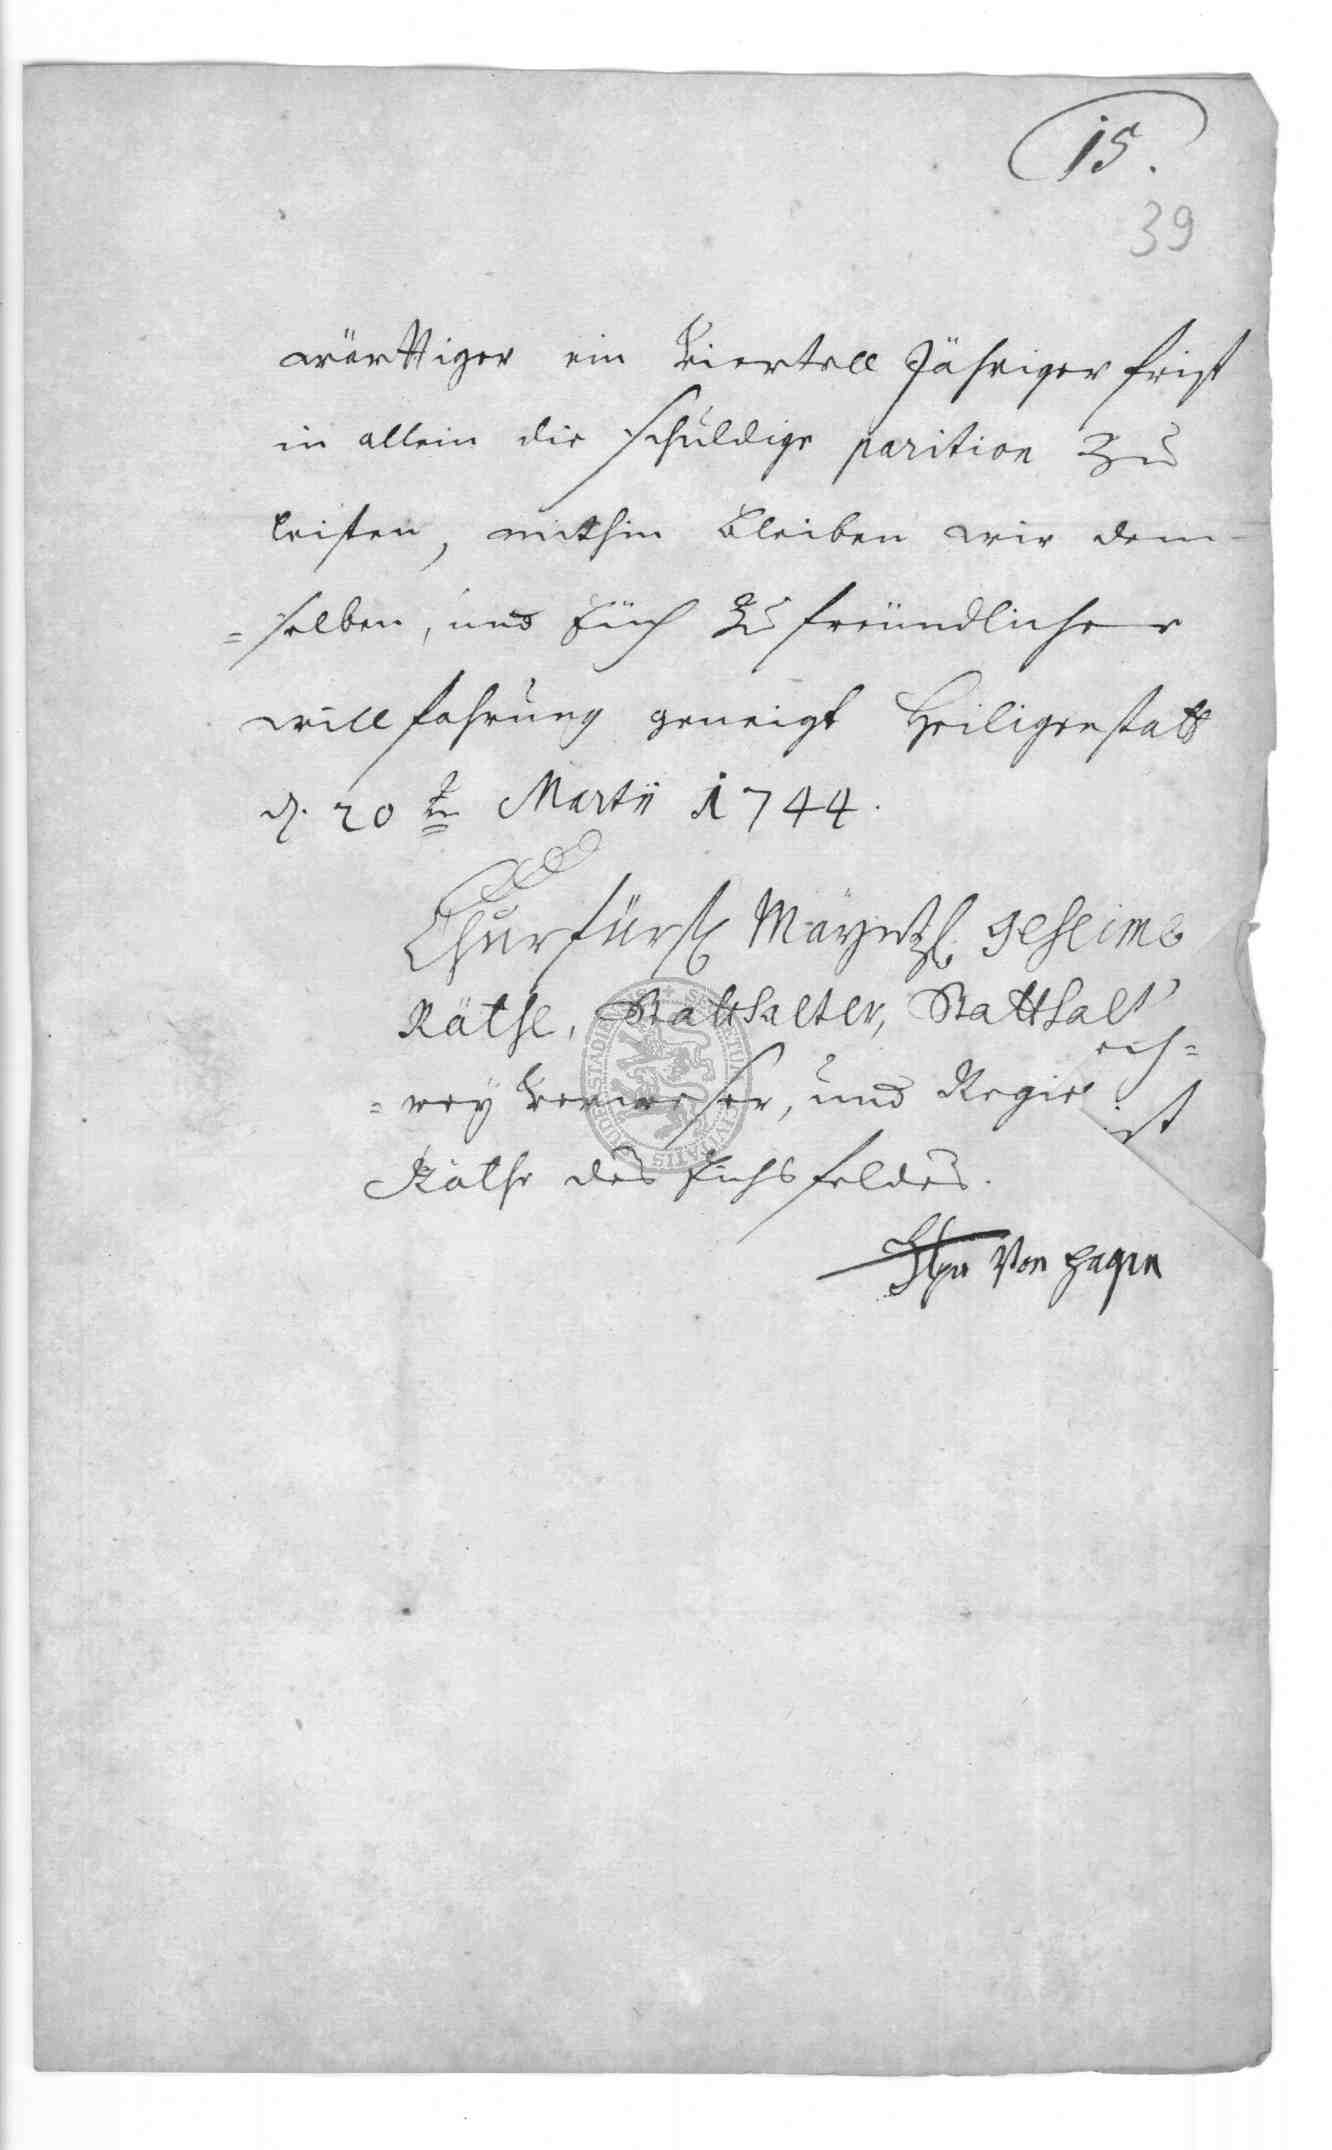 15.
39
wärttiger ein Viertell Jähriger frist
in allem die schuldige parition zu
leisten, mithin bleiben wir dem-
=selben, und Euch zu freündlicher
willfahrung geneigt Heiligenstatt
d. 20ten Martii 1744.
Churfürstl Mayntzl. geheime
Räthe, Statthalter, Statthalt
=rey Verweser, und Regie
Räthe des Eichsfeldes.
von Hagen